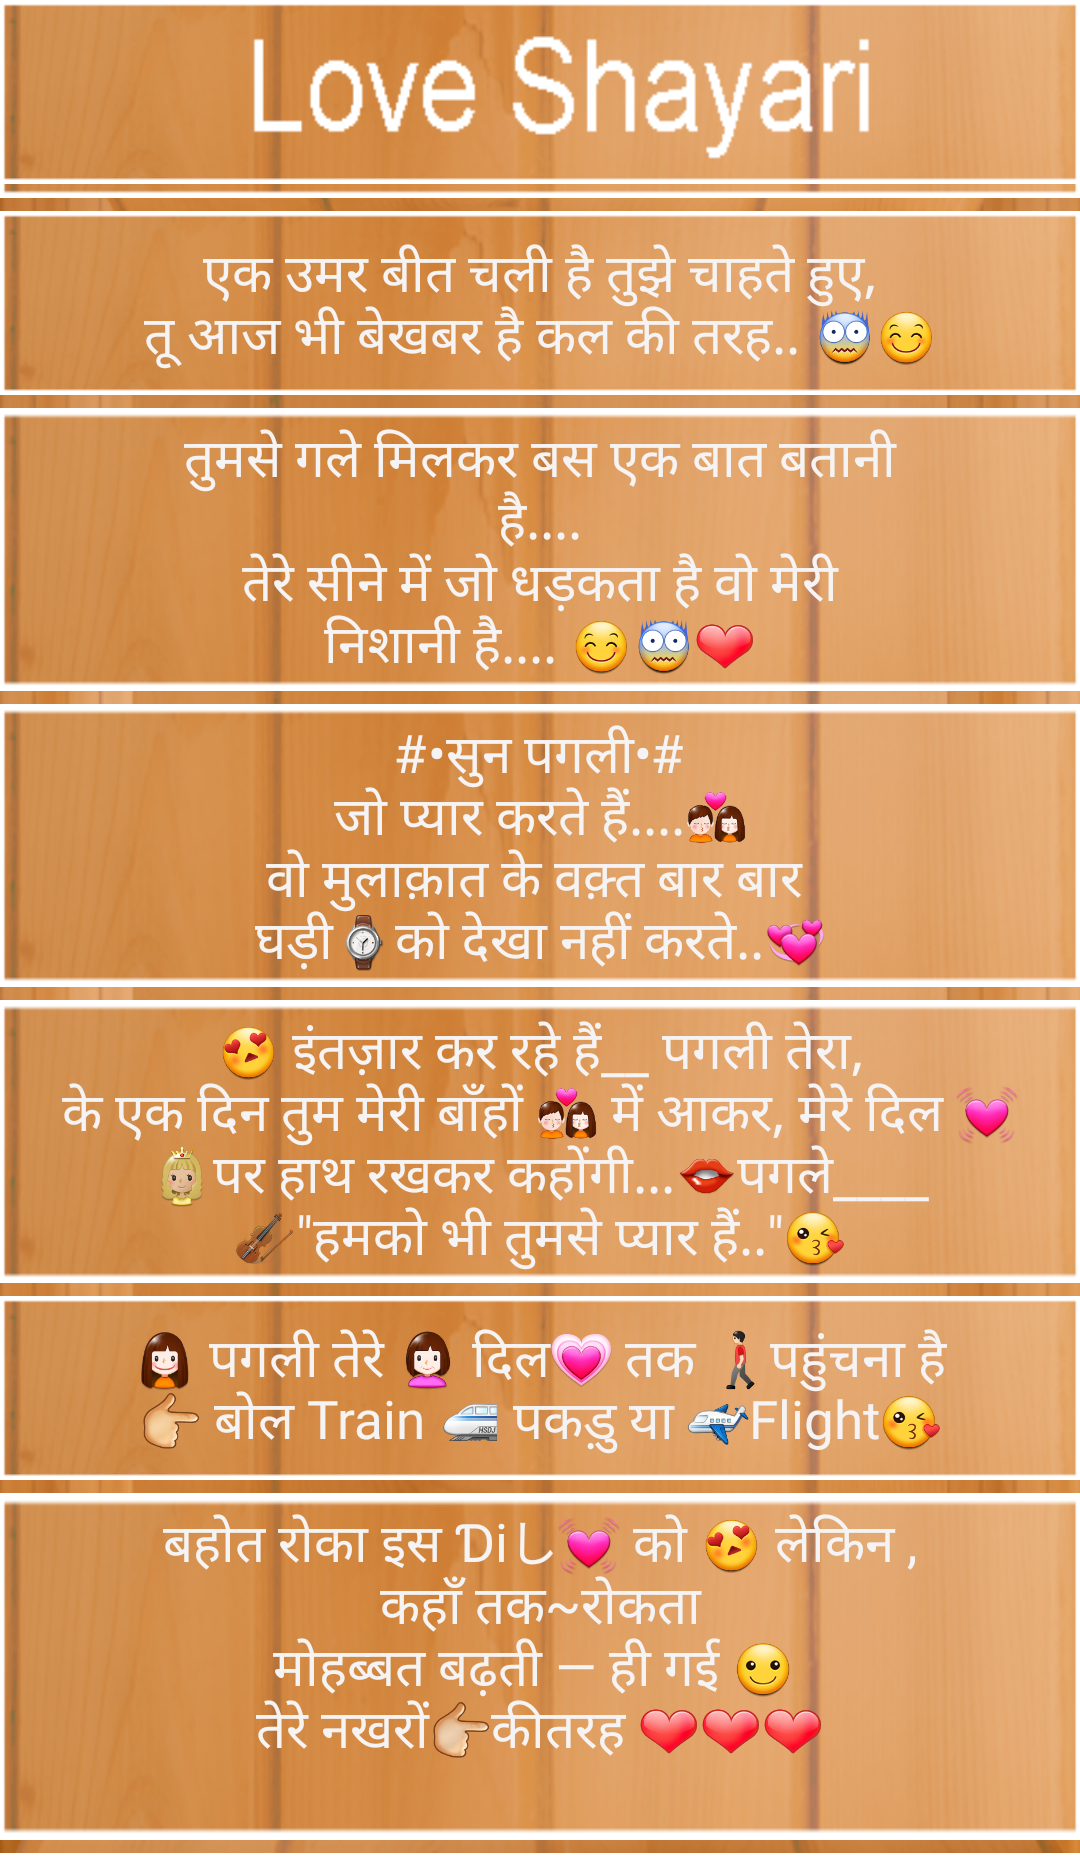 Love Shayari
एक उमर बीत चली है तुझे चाहते हुए,
तू आज भी बेखबर है कल की तरह.. 😨😊
तुमसे गले मिलकर बस एक बात बतानी
है....
तेरे सीने में जो धड़कता है वो मेरी
निशानी है.... 😊😨❤
#•सुन पगली•#
जो प्यार करते हैं....💑
वो मुलाक़ात के वक़्त बार बार
घड़ी⌚को देखा नहीं करते..💞
😍 इंतज़ार कर रहे हैं__ पगली तेरा,
के एक दिन तुम मेरी बाँहों💑 में आकर, मेरे दिल 💓
👸पर हाथ रखकर कहोंगी...👄पगले____
🎻"हमको भी तुमसे प्यार हैं.."😘
👧 पगली तेरे 👩 दिल💗 तक 🚶पहुंचना है
👉 बोल Train 🚄 पकड़ु या ✈Flight😘
बहोत रोका इस Ɗiし💓 को 😍 लेकिन ,
कहाँ तक~रोकता
मोहब्बत बढ़ती – ही गई 🙂
तेरे नखरों👉कीतरह ❤❤❤